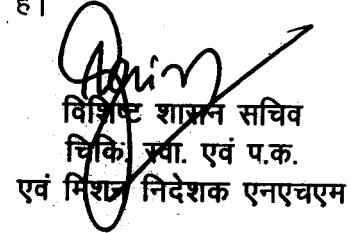 है।
विशिष्ट शासन सचिव
चिकि. स्वा. एवं प.क.
एवं मिशन निदेशक एनएचएम